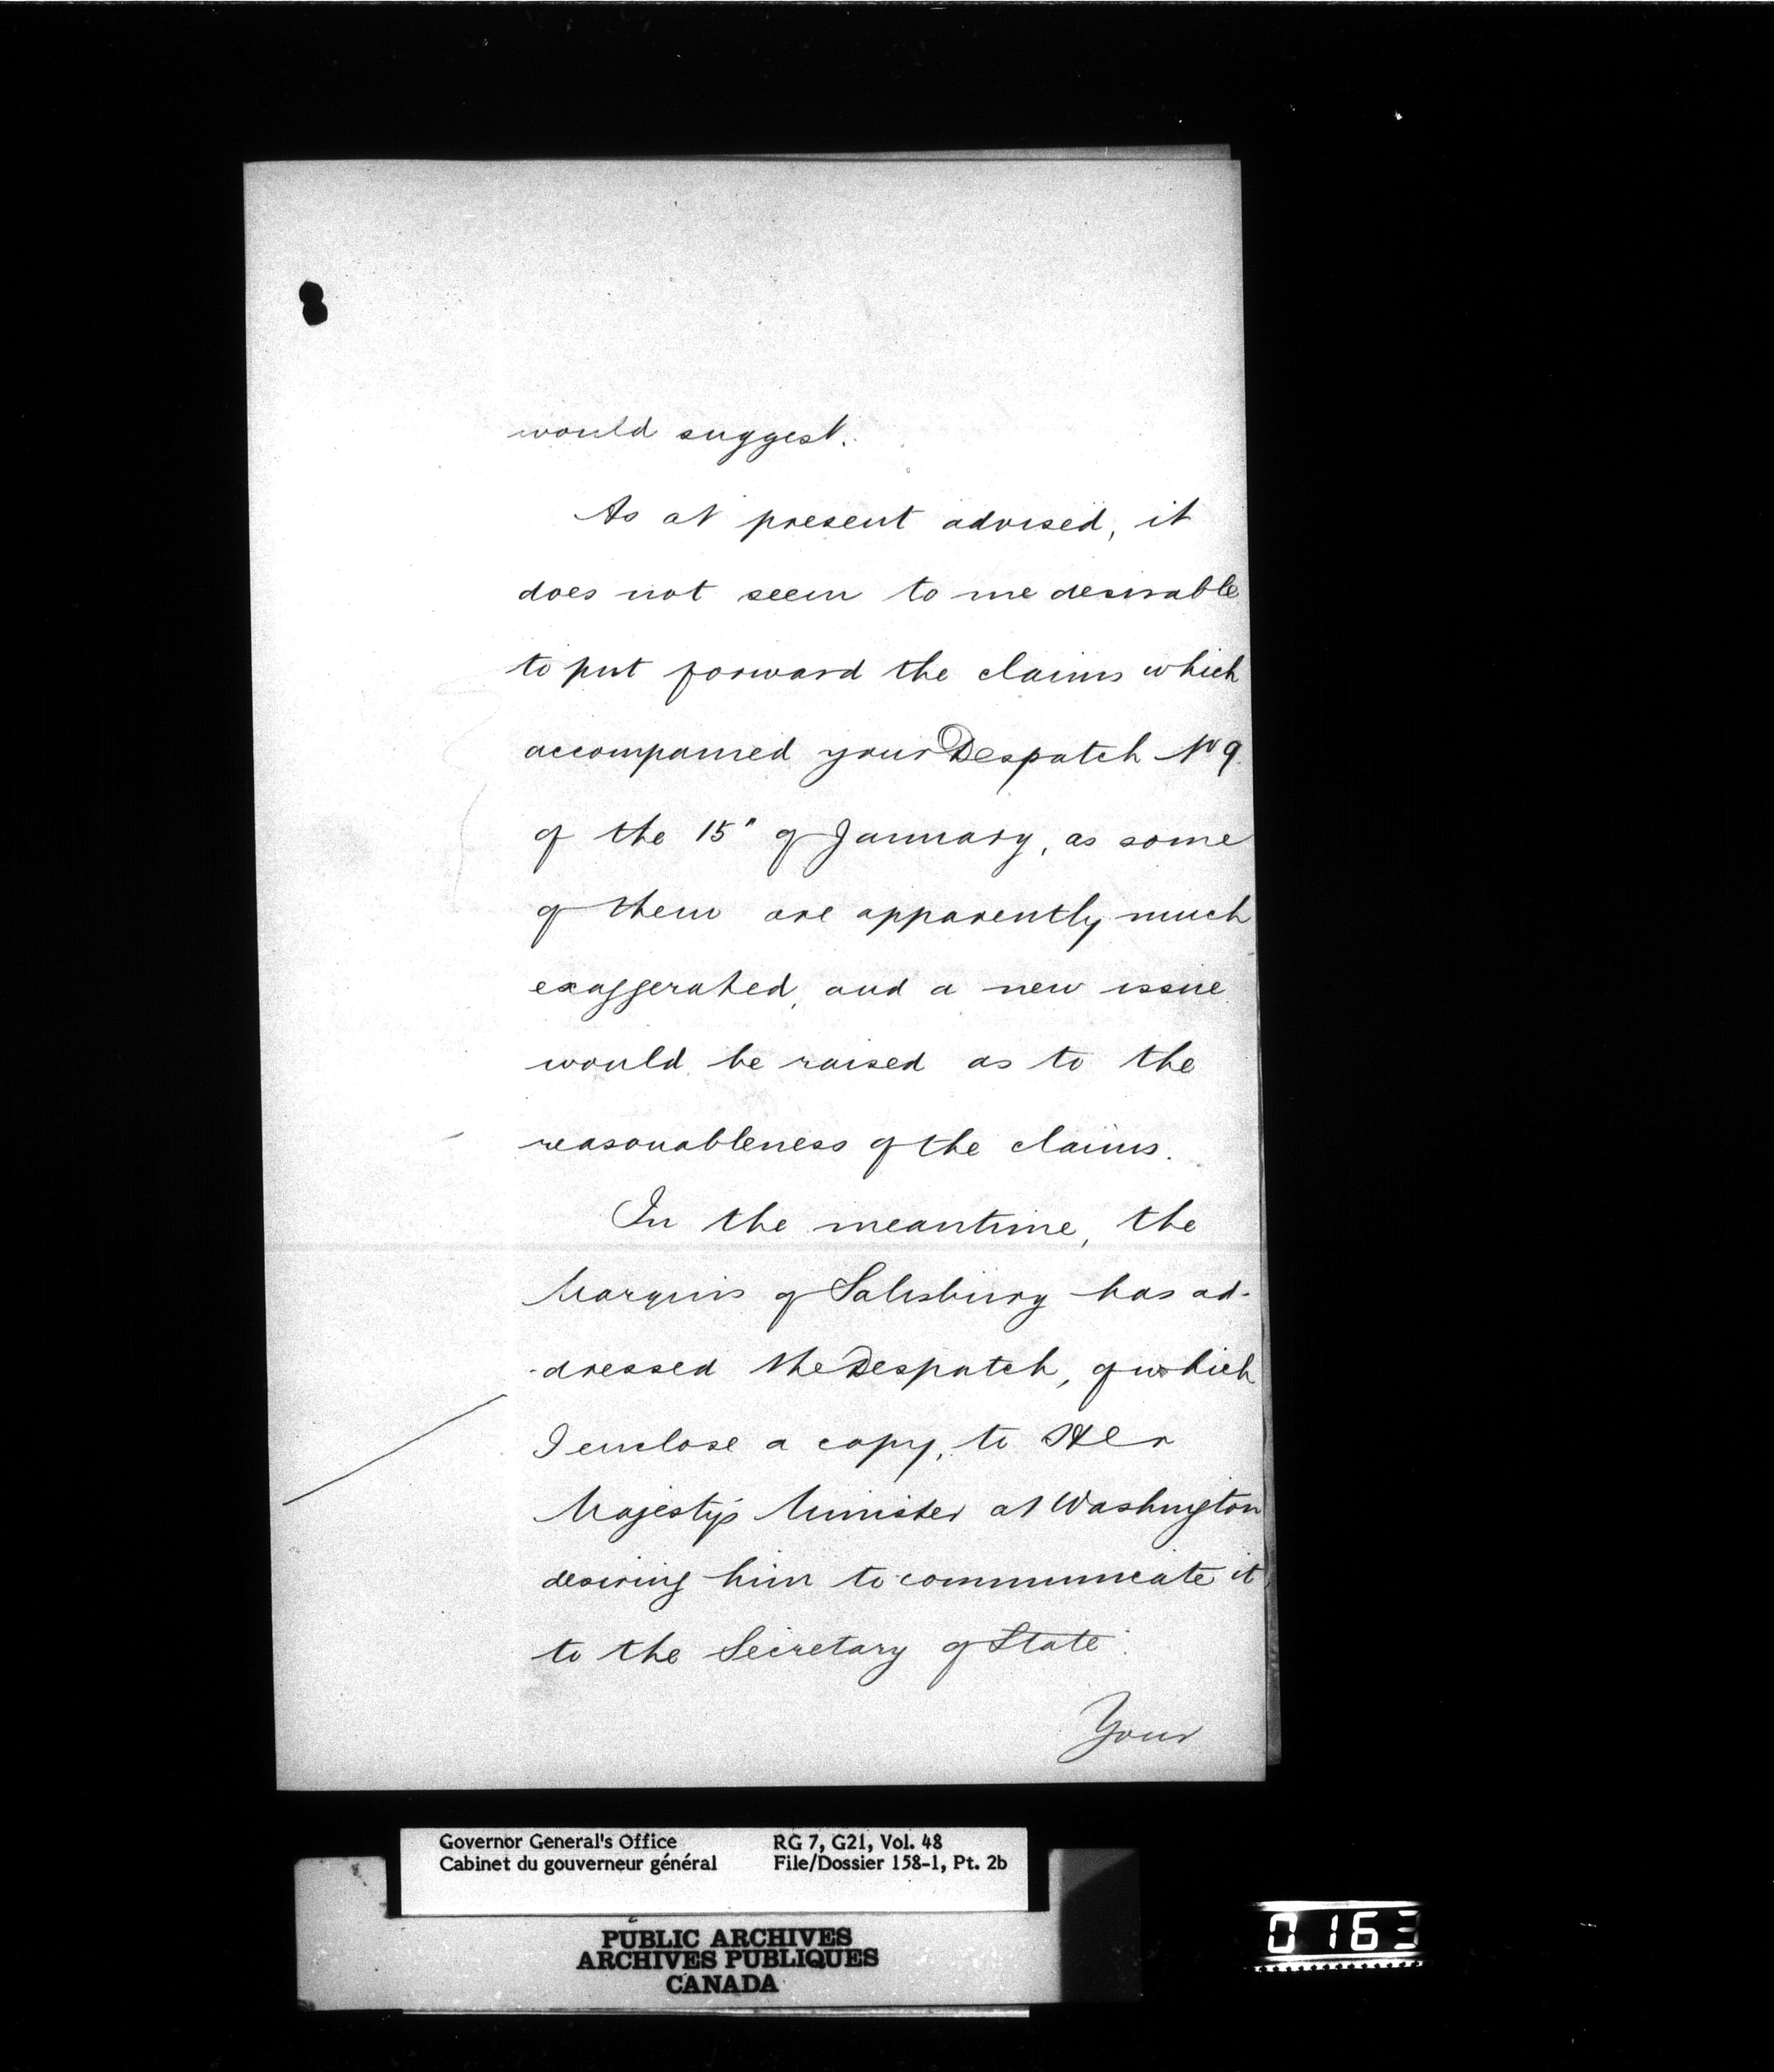 would suggest.
As at present advised, it
does not seem to me desirable
to put forward the claims which
accompanied your Despatch No 9
of the 15" of January, as some
of them are apparently much
exaggerated, and a new issue
would be raised as to the
reasonableness of the claims.
In the meantime, the
Marquis of Salisbury has ad-
-dressed the Despatch, of which
I enclose a copy, to Her
Majesty's Minister at Washington
desiring him to communicate it
to the Secretary of State.
Your
Governor General's Office RG 7, G21, Vol. 48
Cabinet du gouverneur général File/Dossier 158-1, Pt. 2b
PUBLIC ARCHIVES
ARCHIVES PUBLIQUES
CANADA
0163